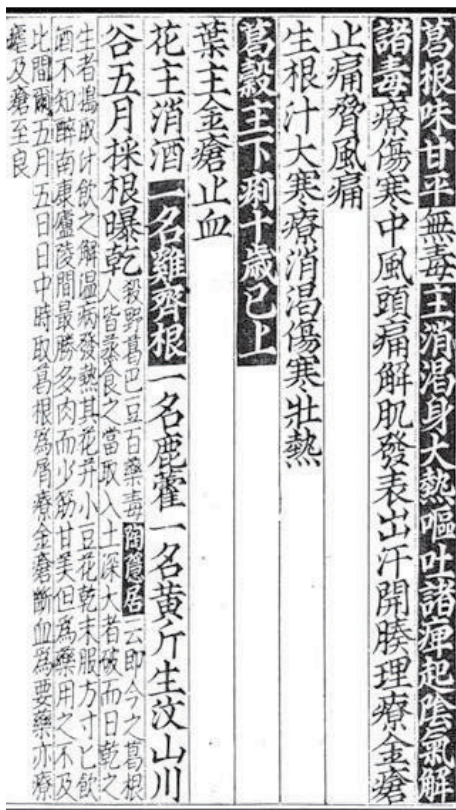 葛根味甘平無毒主消渴身大熱嘔吐諸痹起陰氣解
諸毒療傷寒中風頭痛解肌發表出汗開腠理療金瘡
止痛脅風痛
生根汁大寒療消渴傷寒壯熱
葛穀主下痢十歲已上
葉主金瘡止血
花主消酒一名雞齊根一名鹿藿一名黄斤生汶山川
谷五月採根曝乾
殺野葛巴豆百藥毒陶隱居云即今之葛根
人皆蒸食之當取入土深大者破而日乾之
生者擣取汁飲之解温病發熱其花并小豆花乾末服方寸匕飲
酒不知醉南康廬陵間最勝多肉而少筋甘美但爲藥用之不及
此間爾五月五日日中時取葛根爲屑療金瘡斷血爲要藥亦療
瘧及瘡至良